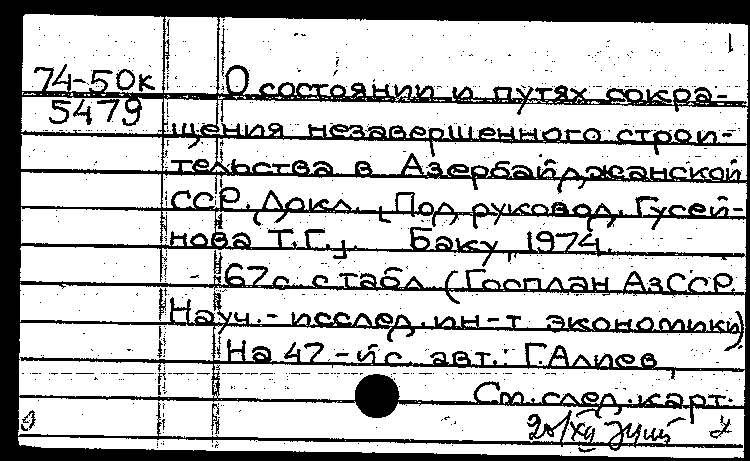 1
74-50к О состоянии и путях сокра-
5479
щения незавершенного строи-
тельства в Азербайджанской
ССР. Докл. [Под руковод. Гусей-
нова Т.Г.]. Баку, 1974.
67 с. с табл. (Госплан АзССР.
Науч.-исслед. ин-т экономики)
На 47-й с. авт.: Г.Алиев,
См. след. карт.